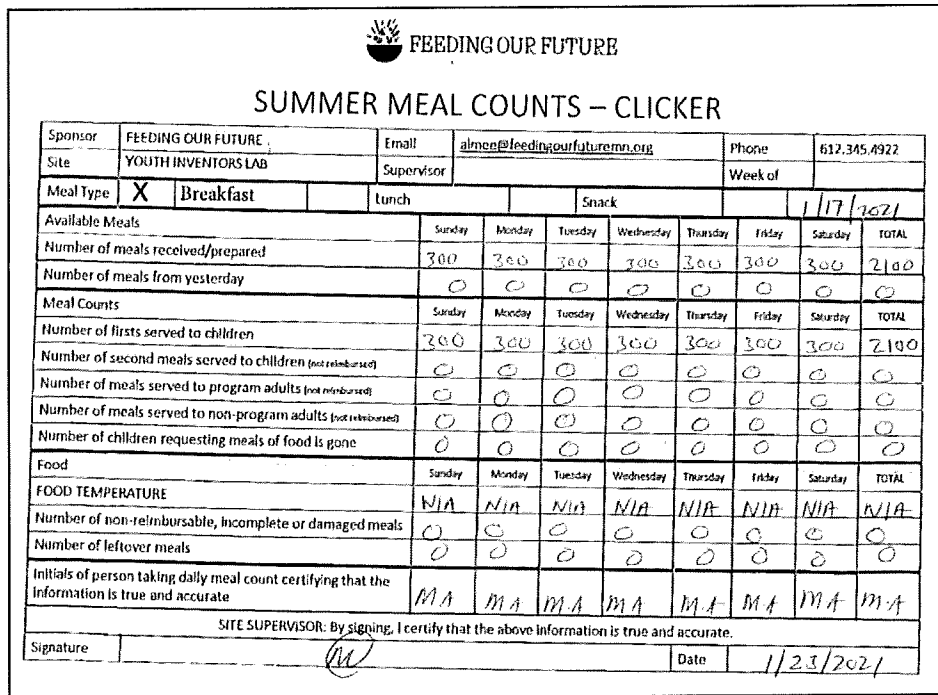 FEEDING OUR FUTURE
SUMMER MEAL COUNTS – CLICKER
Sponsor FEEDING OUR FUTURE Email aimee@feedingourfuturemn.org Phone 612.345.4922
Site YOUTH INVENTORS LAB Supervisor Week of
Meal Type X Breakfast Lunch Snack 1/17/2021
Available Meals Sunday Monday Tuesday Wednesday Thursday Friday Saturday TOTAL
Number of meals received/prepared 300 300 300 300 300 300 300 2100
Number of meals from yesterday 0 0 0 0 0 0 0 0
Meal Counts Sunday Monday Tuesday Wednesday Thursday Friday Saturday TOTAL
Number of firsts served to children 300 300 300 300 300 300 300 2100
Number of second meals served to children (not reimbursed) 0 0 0 0 0 0 0 0
Number of meals served to program adults (not reimbursed) 0 0 0 0 0 0 0 0
Number of meals served to non-program adults (not reimbursed) 0 0 0 0 0 0 0 0
Number of children requesting meals of food is gone 0 0 0 0 0 0 0 0
Food Sunday Monday Tuesday Wednesday Thursday Friday Saturday TOTAL
FOOD TEMPERATURE N/A N/A N/A N/A N/A N/A N/A N/A
Number of non-reimbursable, incomplete or damaged meals 0 0 0 0 0 0 0 0
Number of leftover meals 0 0 0 0 0 0 0 0
Initials of person taking daily meal count certifying that the
information is true and accurate M A M A M.A M A M.A M.A M A M.A
SITE SUPERVISOR: By signing, I certify that the above information is true and accurate.
Signature Date 1/23/2021